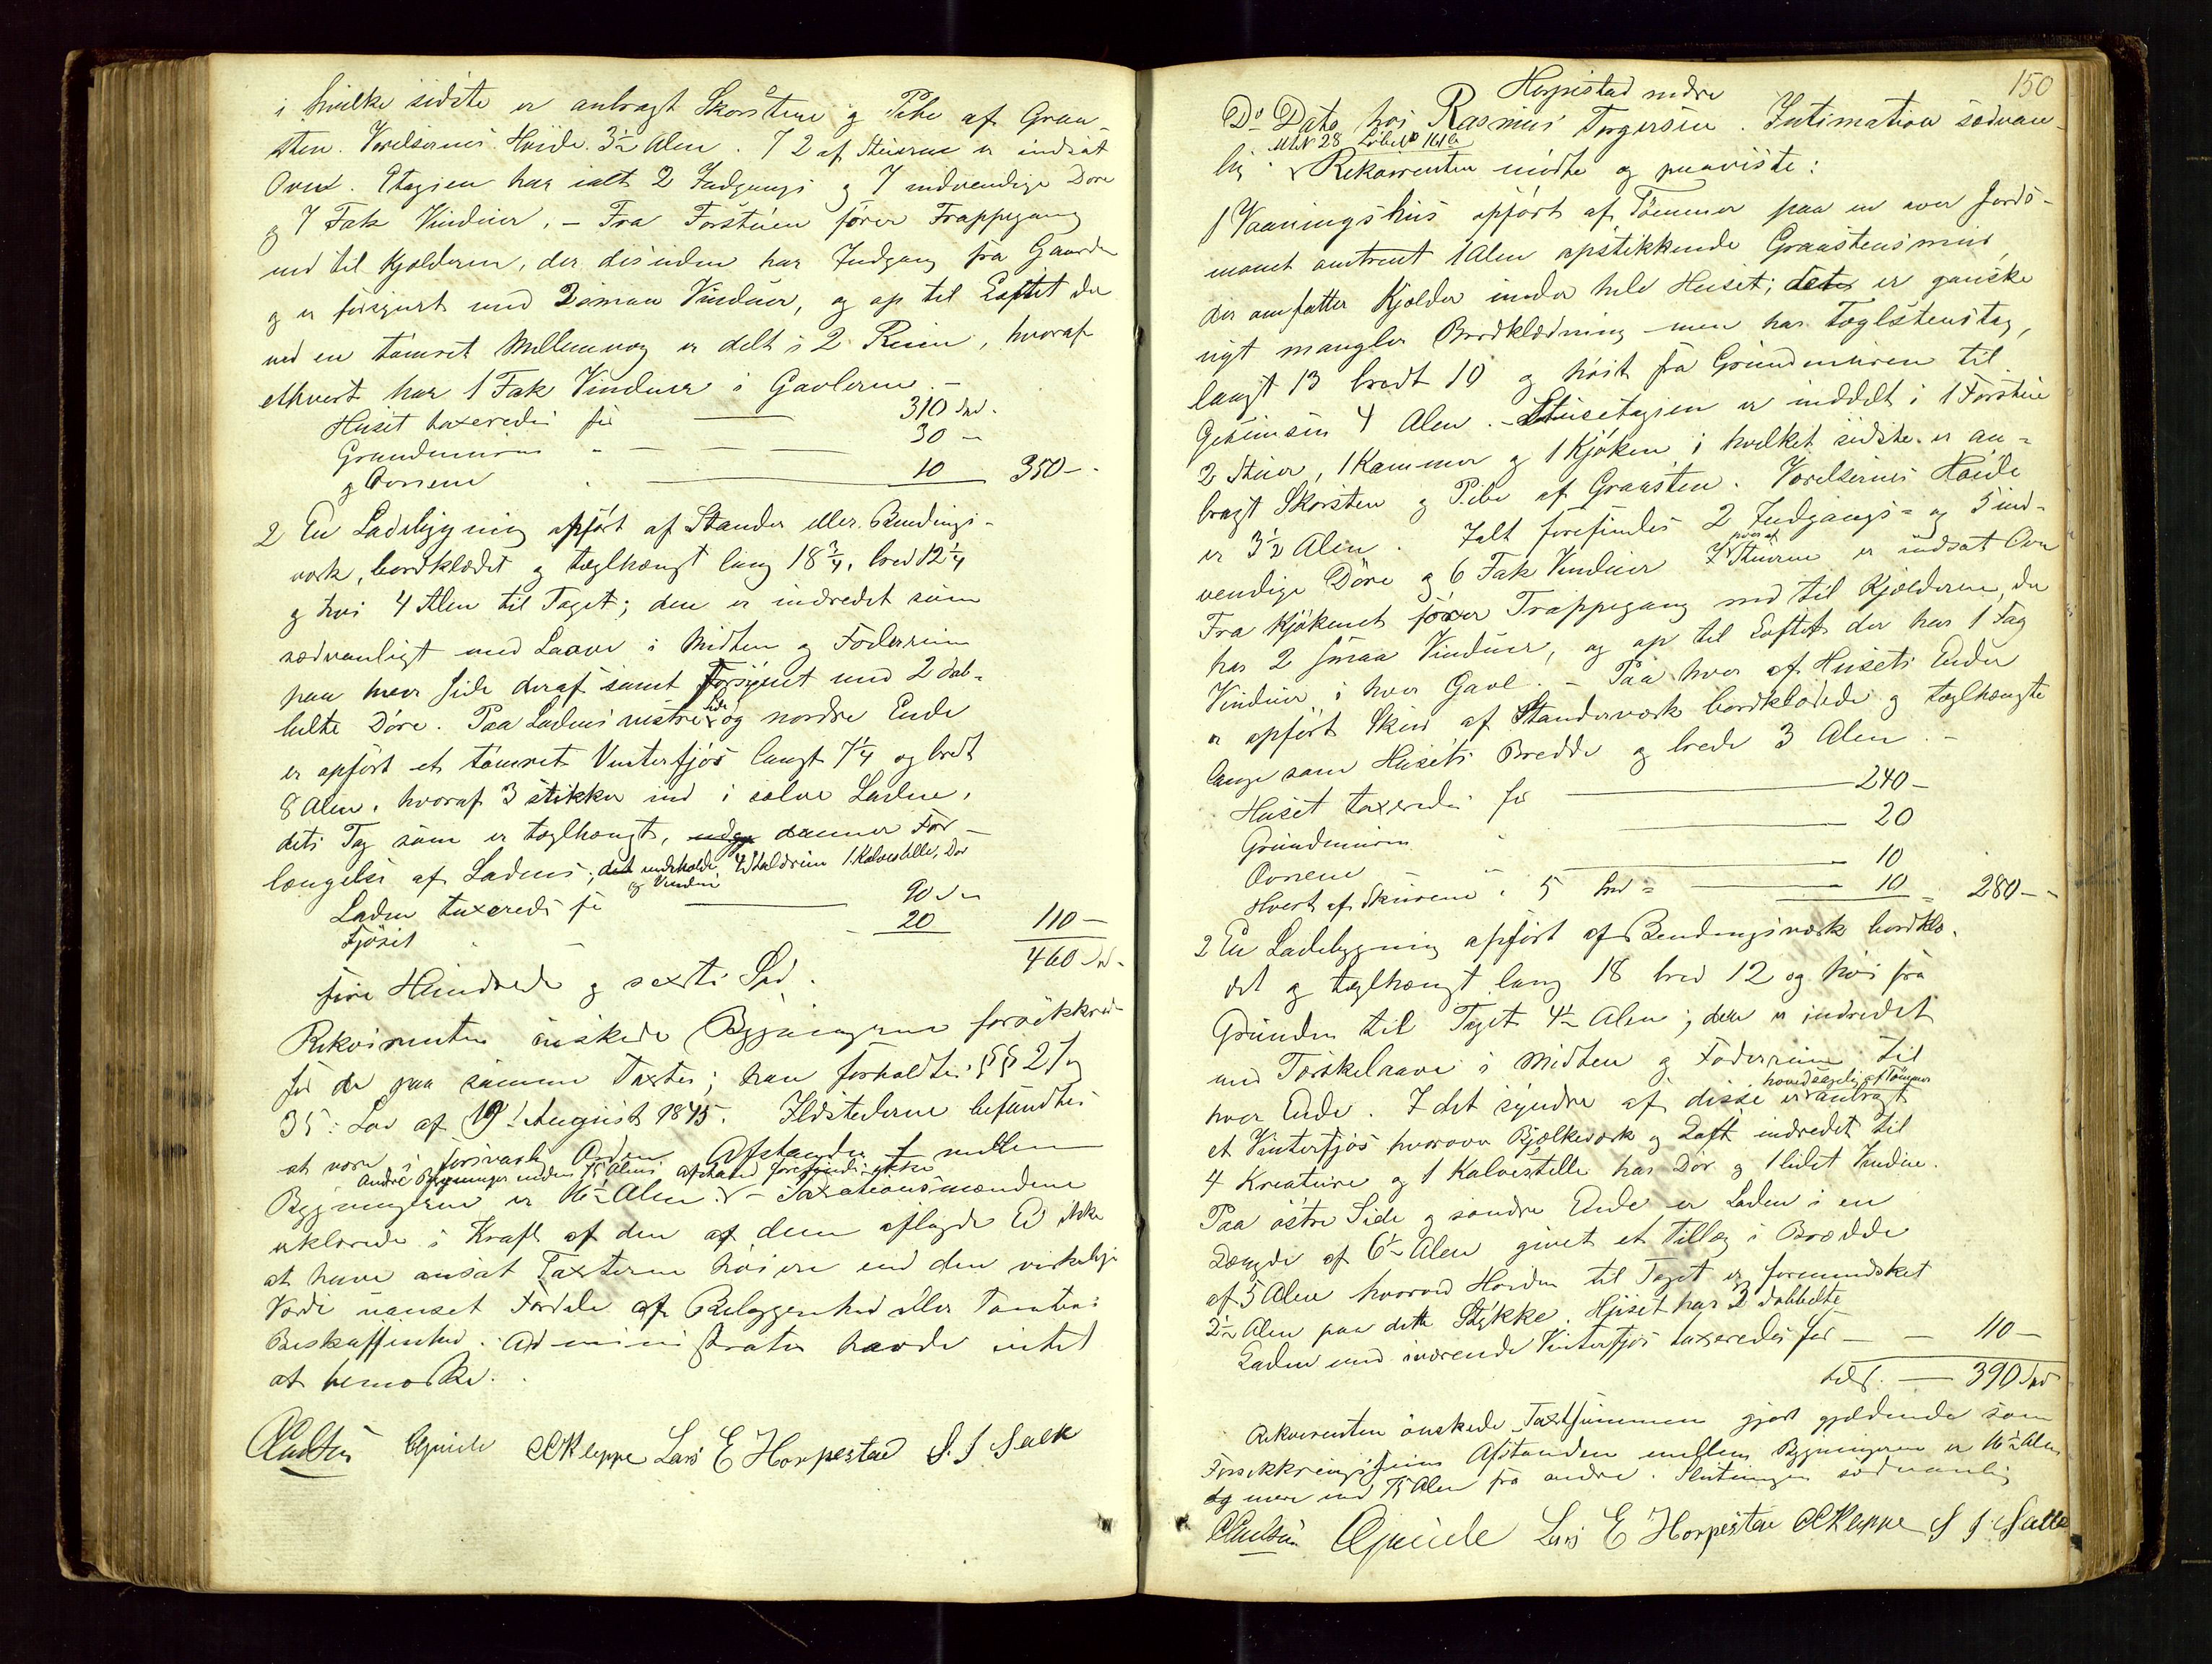 i hvilke sidste er anbragt Skorstene og Pibe af Graa-
sten. Værelsernes Høide 3½ Alen. I 2 af Stuerne er indsat
Ovne. Etagien har ialt 2 Indgangs og 7 indvendige Døre
og 7 Fak Vinduer. – Fra Forstuen fører Trappegang
ned til Kjelderen, der desuden har Indgang fra Gaarden
og er forsynet med 2 smaa Vinduer, og op til Loftet der
ved en tømret Mellemvæg er delt i 2 Rum, hvoraf
ethvert har 1 Fak Vinduer i Gavlerne. –
Huset taxeredes for — 310 Spd.
Grundmuren " — 30 –
og Ovnene — 10 350 –
2 En Ladebygning opført af Stander eller Bendings-
værk, bordklædet og teglhængt lang 18¾, bred 12¼
og høi 4 Alen til Taget; den er indredet som
sædvanligt med Laave i Midten og Foderrum
paa hver Side deraf samt forsynet med 2 dob-
belte Døre. Paa Ladens vestre Side og nordre Ende
er opført et tømret Vinterfjøs langt 7¼ og bredt
8 Alen, hvoraf 3 stikker ind i selve Laden,
dets Tag som er teglhængt, danner For-
længelse af Ladens; det indeholder 4 Staldrum 1 Kalvestelle, Dør
og Vindue
Laden taxeredes for — 90 Spd
Fjøset " — 20 110 –
460 Spd.
fire Hundrede og sexti Spd.
Rekvirenten ønskede Bygningerne forsikkred
for de paa samme Taxter; han forholdtes §§ 27 og
35 Lov af 19 August 1845. Ildstederne befandtes
at være i forsvarlig Orden. Afstanden mellem
Andre Bygninger inden 75 Alens Afstand forefindes ikke
Bygningerne er 16½ Alen. – Taxationsmændene
erklærede i Kraft af den af dem aflagde Ed ikke
at have ansat Taxterne høiere end den virkelige
Værdi uanset Fordele af Beliggenhed eller Tomtens
Beskaffenhed. Administrator havde intet
at bemærke.
Gjuide OCKleppe Lars E Horpestad S. J Salte
150
Horpestad nedre
Do Dato hos Rasmus Torgersen. Intimation sædvan-
MNo 28 LøbeNo 161b
lig. Rekvirenten mødte og paaviste:
1 Vaaningshus opført af Tømmer paa en over Jords-
monet omtrent 1 Alen opstikkende Graastensmur,
der omfatter Kjelder under hele Huset; det er ganske
nyt mangler Bordklædning men har Teglstenstag,
langt 13 bredt 10 og høit fra Grundmuren til
Gesimsen 4 Alen. – Stueetagien er inddelt i 1 Forstue
2 Stuer, 1 Kammer og 1 Kjøken i hvilket sidste er an-
bragt Skorsten og Pibe af Graasten. Værelsernes Høide
er 3½ Alen. Ialt forefindes 2 Indgangs- og 5 ind-
vendige Døre og 6 Fak Vinduer I hver af Stuerne er indsat Ovn
Fra Kjøkenet fører Trappegang ned til Kjelderen, der
har 2 smaa Vinduer, og op til Loftet der har 1 Fag
Vinduer i hver Gavl. – Paa hver af Husets Ender
er opført Skur af Standerværk bordklædede og teglhængte
lange som Husets Bredde og brede 3 Alen. –
Huset taxeredes for — 240 –
Grundmuren " — 20
Ovnene " — 10
Hvert af Skurene " 5 Spd = — 10 280 –
2 En Ladebygning opført af Bendingsværk bordklæ-
det og teglhængt lang 18 bred 12 og høi fra
Grunden til Taget 4½ Alen; den er indredet
med Tærskelaave i Midten og Foderrum til
hver Ende. I det søndre af disse er hovedsagelig af Tømmer anbragt
et Vinterfjøs hvorover Bjelkeværk og Loft indredet til
4 Kreature og 1 Kalvestelle har Dør og 1 lidet Vindue.
Paa østre Side og søndre Ende er Laden i en
Længde af 6½ Alen givet et Tillæg i Bredde
af 5 Alen hvorved Høiden til Taget er formindsket
2½ Alen paa dette Stykke. Huset har 2 dobbelte
Laden med iværende Vinterfjøs taxeredes for — 110 –
tils. — 390 Spd
Rekvirenten ønskede Taxtsummen gjort gjældende som
Forsikkringssum Afstanden mellem Bygningerne er 16½ Alen
og mere end 75 Alen fra andre. Slutningen sædvanlig
Gjuide Lars E Horpestad OCKleppe S J Salte